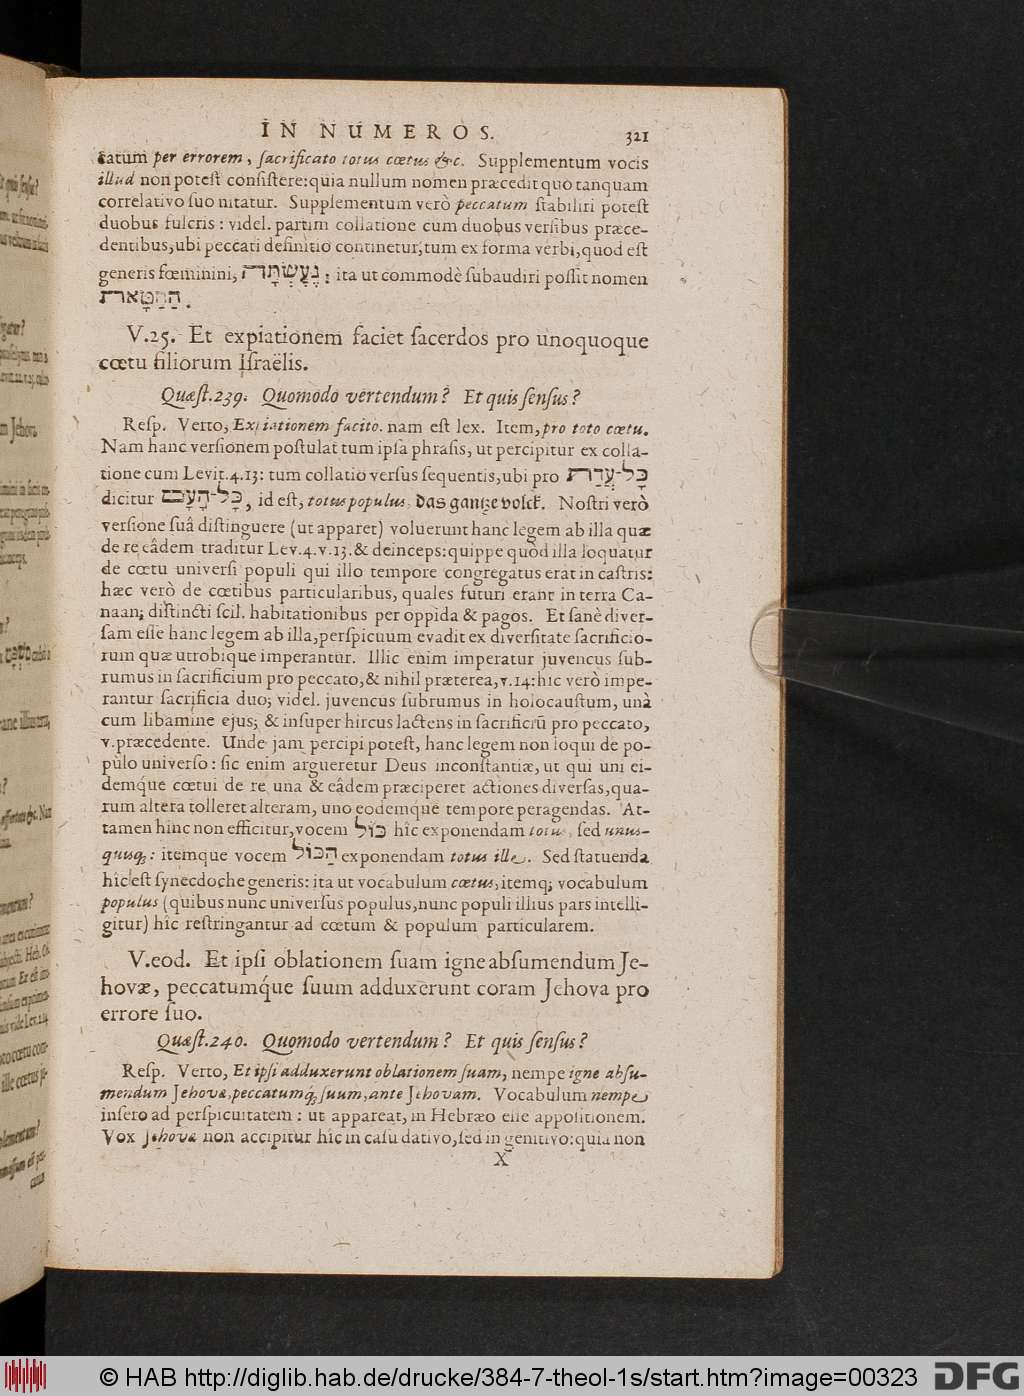 IN NUMEROS. 321
catum per errorem, ſacrificato totus cœtus &c. Supplementum vocis
illud non poteſt conſiſtere: quia nullum nomen præcedit quo tanquam
correlativo ſuo nitatur. Supplementum verò peccatum ſtabiliri poteſt
duobus fulcris: videl. partim collatione cum duobus verſibus præce-
dentibus, ubi peccati definitio continetur, tum ex forma verbi, quod eſt
generis fœminini, נֶעֶשְׂתָה: ita ut commodè ſubaudiri poſſit nomen
הַחַטָּאת.
V.25. Et expiationem faciet ſacerdos pro unoquoque
cœtu filiorum Iſraëlis.
Quæſt.239. Quomodo vertendum? Et quis ſenſus?
Reſp. Verto, Expiationem facito. nam eſt lex. Item, pro toto cœtu.
Nam hanc verſionem poſtulat tum ipſa phraſis, ut percipitur ex colla-
tione cum Levit.4.13: tum collatio verſus ſequentis, ubi pro כָּל־עֲדַת
dicitur כָּל־הָעָם, id eſt, totus populus, das gantze volck. Noſtri verò
verſione ſuâ diſtinguere (ut apparet) voluerunt hanc legem ab illa quæ
de re eâdem traditur Lev.4.v.13.& deinceps: quippe quòd illa loquatur
de cœtu univerſi populi qui illo tempore congregatus erat in caſtris:
hæc verò de cœtibus particularibus, quales futuri erant in terra Ca-
naan; diſtincti ſcil. habitationibus per oppida & pagos. Et ſanè diver-
ſam eſſe hanc legem ab illa, perſpicuum evadit ex diverſitate ſacrificio-
rum quæ utrobique imperantur. Illic enim imperatur juvencus ſub-
rumus in ſacrificium pro peccato, & nihil præterea, v.14: hic verò impe-
rantur ſacrificia duo; videl. juvencus ſubrumus in holocauſtum, unà
cum libamine ejus; & inſuper hircus lactens in ſacrificiũ pro peccato,
v.præcedente. Unde jam percipi poteſt, hanc legem non loqui de po-
pulo univerſo: ſic enim argueretur Deus inconſtantiæ, ut qui uni ei-
demq́ue cœtui de re una & eâdem præciperet actiones diverſas, qua-
rum altera tolleret alteram, uno eodemque tempore peragendas. At-
tamen hinc non efficitur, vocem כּוֹל hîc exponendam totus, ſed unus-
quisq;: itemque vocem הַכּוֹל exponendam totus ille. Sed ſtatuenda
hîc eſt ſynecdoche generis: ita ut vocabulum cœtus, itemq; vocabulum
populus (quibus nunc univerſus populus, nunc populi illius pars intelli-
gitur) hîc reſtringantur ad cœtum & populum particularem.
V.eod. Et ipſi oblationem ſuam igne abſumendum Je-
hovæ, peccatumq́ue ſuum adduxerunt coram Jehova pro
errore ſuo.
Quæſt.240. Quomodo vertendum? Et quis ſenſus?
Reſp. Verto, Et ipſi adduxerunt oblationem ſuam, nempe igne abſu-
mendum Jehovæ, peccatumq; ſuum, ante Jehovam. Vocabulum nempe
inſero ad perſpicuitatem: ut appareat, in Hebræo eſſe appoſitionem.
Vox Jehovæ non accipitur hîc in caſu dativo, ſed in genitivo: quia non
X
© HAB http://diglib.hab.de/drucke/384-7-theol-1s/start.htm?image=00323
DFG